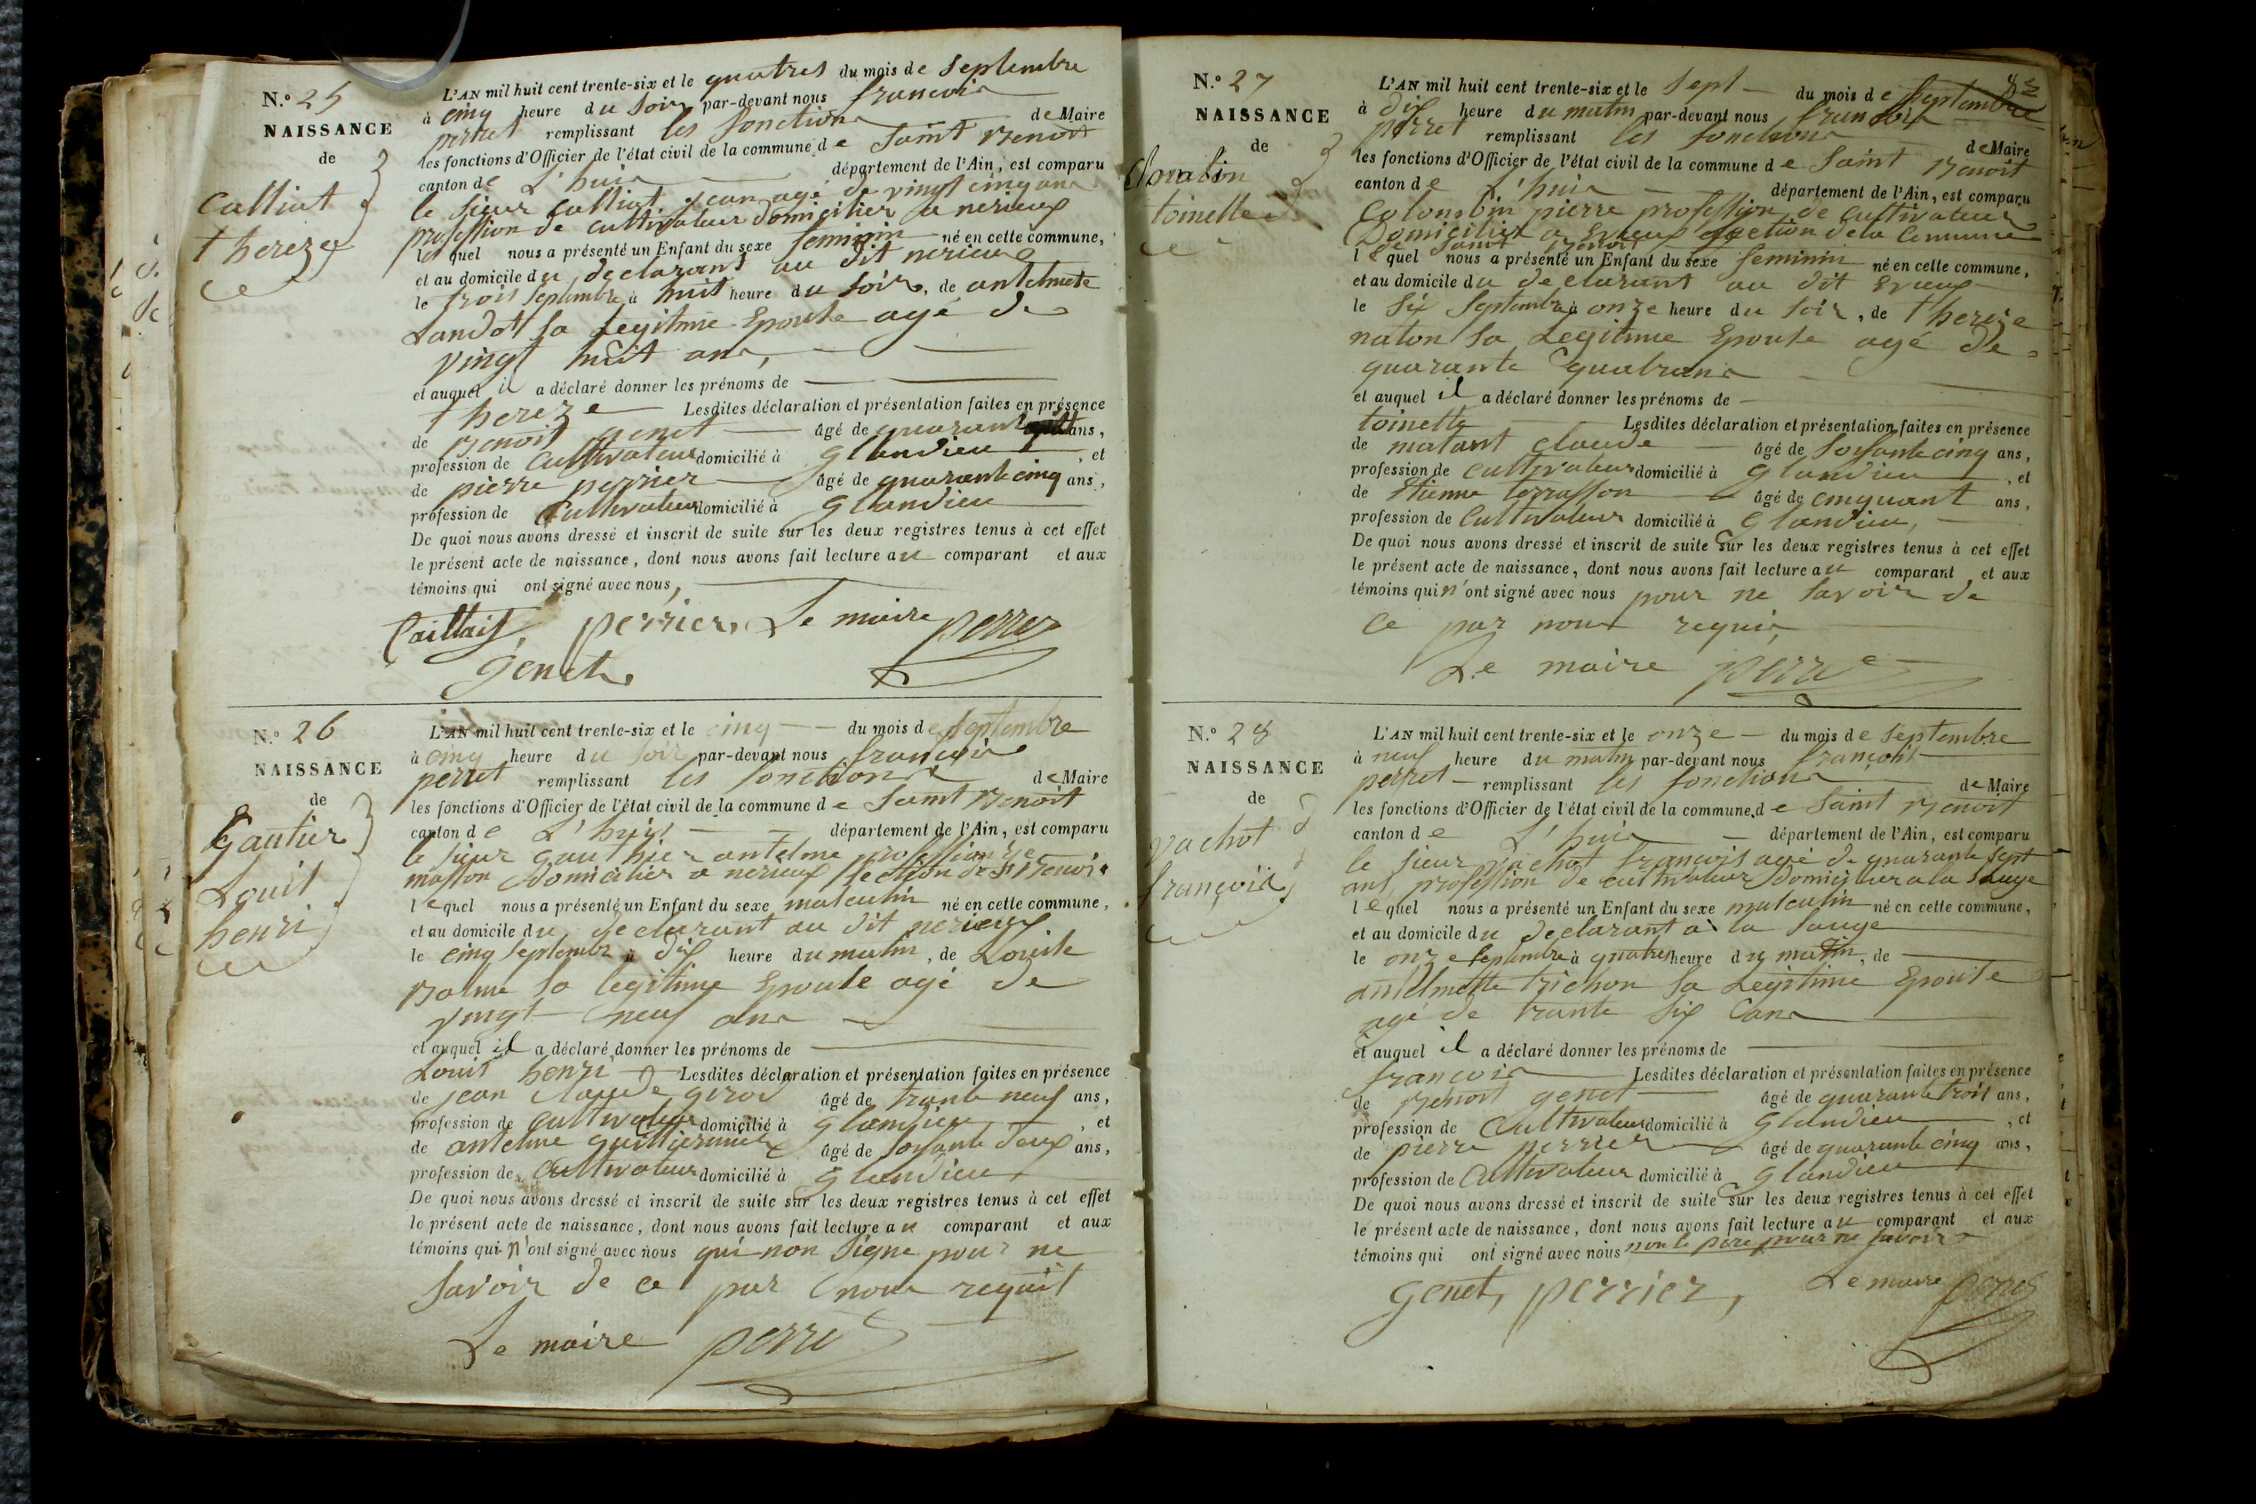 N.º 25
NAISSANCE
de
Calliat
thereze
L'AN mil huit cent trente-six et le quatres du mois de Septembre
à cinq heure du soir par-devant nous françois
perret remplissant les fonctions de Maire
les fonctions d'Officier de l'état civil de la commune de Saint Benoit
canton de L'huis département de l'Ain, est comparu
le sieur Calliat jean agé de vingt cinq ans
profession de cultivateur domicilier a nerieux
lequel nous a présenté un Enfant du sexe feminin né en cette commune,
et au domicile du declarant au dit nerieux
le trois Septembre à huit heure du soir, de antelmete
Landot sa legitime Epouse agé de
vingt huit ans,
et auquel il a déclaré donner les prénoms de
thereze Lesdites déclaration et présentation faites en présence
de Benoit genet âgé de quarante ans,
profession de Cultivateur domicilié à glandieu, et
de pierre perrier âgé de quarante cinq ans,
profession de Cultivateur domicilié à glandieu
De quoi nous avons dressé et inscrit de suite sur les deux registres tenus à cet effet
le présent acte de naissance, dont nous avons fait lecture au comparant et aux
témoins qui ont signé avec nous,
perrier, Le maire perret
genet
N.º 26
NAISSANCE
de
Gautier
Louis
henri
L'AN mil huit cent trente-six et le cinq du mois de Septembre
à cinq heure du soir par-devant nous françois
perret remplissant les fonctions de Maire
les fonctions d'Officier de l'état civil de la commune de Saint Benoit
canton de L'huis département de l'Ain, est comparu
le sieur gauthier antelme profession de
masson domicilier a nerieux section de St Benoit
lequel nous a présenté un Enfant du sexe masculin né en cette commune,
et au domicile du declarant au dit nerieux
le cinq septembre à dix heure du matin, de Louise
Balme sa legitime Epouse agé de
vingt neuf ans
et auquel il a déclaré donner les prénoms de
Louis henri Lesdites déclaration et présentation faites en présence
de jean Claude girod âgé de trante neuf ans,
profession de cultivateur domicilié à glandieu, et
de antelme âgé de soixante deux ans,
profession de Cultivateur domicilié à glandieu
De quoi nous avons dressé et inscrit de suite sur les deux registres tenus à cet effet
le présent acte de naissance, dont nous avons fait lecture au comparant et aux
témoins qui n'ont signé avec nous qui non Signe pour ne
savoir de ce par nous requit
Le maire perret
N.º 27
NAISSANCE
de
toinette
L'AN mil huit cent trente-six et le Sept du mois de Septembre
à dix heure du matin par-devant nous françois
perret remplissant les fonctions de Maire
les fonctions d'Officier de l'état civil de la commune de Saint Benoit
canton de L'huis département de l'Ain, est comparu
Colombin pierre profession de Cultivateur
Domicilier a Evieux section de la Commune
de Saint Benoit
lequel nous a présenté un Enfant du sexe feminin né en cette commune,
et au domicile du declarant au dit Evieux
le Six Septembre à onze heure du soir, de thereze
naton sa Legitime Epouse agé de
quarante quatrans
et auquel il a déclaré donner les prénoms de
toinette Lesdites déclaration et présentation faites en présence
de matant claude âgé de soixante cinq ans,
profession de cultivateur domicilié à glandieu, et
de Etienne terrasson âgé de cinquant ans,
profession de Cultivateur domicilié à glandieu,
De quoi nous avons dressé et inscrit de suite sur les deux registres tenus à cet effet
le présent acte de naissance, dont nous avons fait lecture au comparant, et aux
témoins qui n'ont signé avec nous pour ne savoir de
ce par nous requis
Le maire perret
N.º 28
NAISSANCE
de
vachot
françois
L'AN mil huit cent trente-six et le onze du mois de Septembre
à neuf heure du matin par-devant nous françois
perret remplissant les fonctions de Maire
les fonctions d'Officier de l'état civil de la commune de Saint Benoit
canton de L'huis département de l'Ain, est comparu
le sieur vachot françois agé de quarante sept
ans, profession de cultivateur domicilier a la Sauge
lequel nous a présenté un Enfant du sexe masculin né en cette commune,
et au domicile du declarant à la Sauge
le onze septembre à quatres heure du matin, de
antelmette trichon sa Legitime Epouse
agé de trante six ans
et auquel il a déclaré donner les prénoms de
françois Lesdites déclaration et présentation faites en présence
de Benoit genet âgé de quarante trois ans,
profession de Cultivateur domicilié à glandieu, et
de pierre perrier âgé de quarante cinq ans,
profession de Cultivateur domicilié à glandieu
De quoi nous avons dressé et inscrit de suite sur les deux registres tenus à cet effet
le présent acte de naissance, dont nous avons fait lecture au comparant et aux
témoins qui ont signé avec nous non le pere pour ne savoir
genet, perrier, Le maire perret